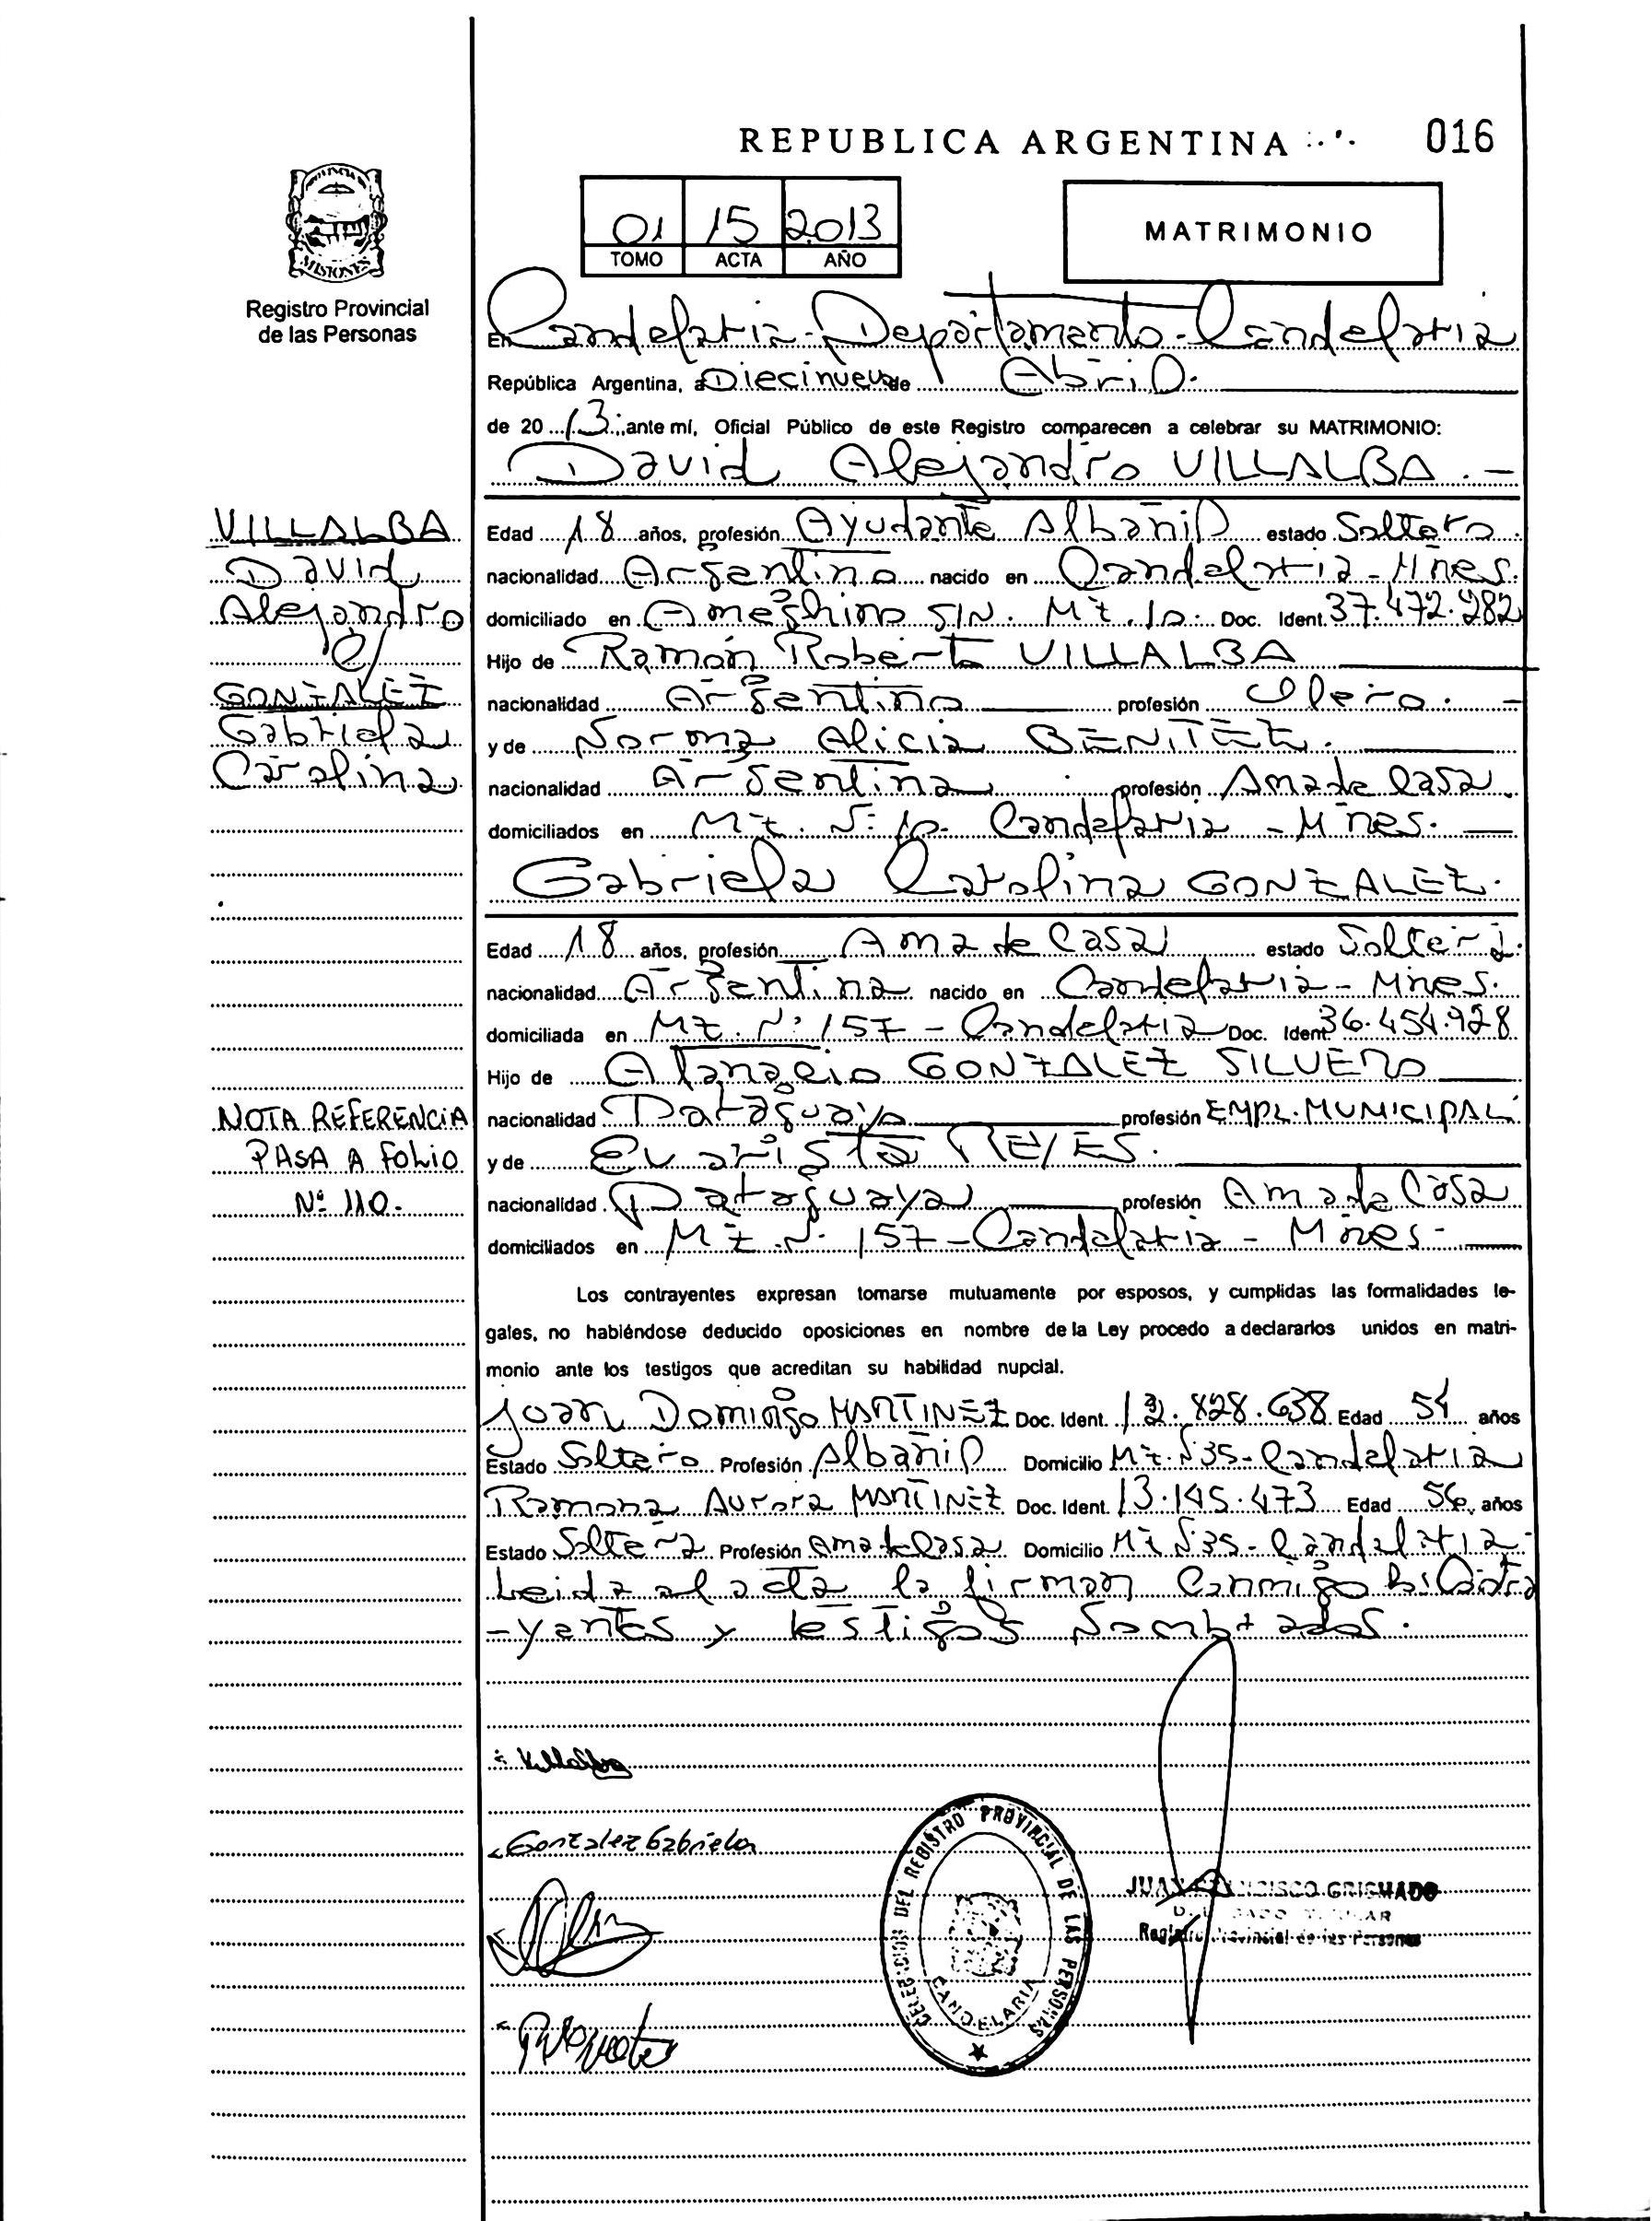 REPUBLICA ARGENTINA
016
PROVINCIA DE
MISIONES
Registro Provincial
de las Personas
01 15 2013
TOMO ACTA AÑO
MATRIMONIO
En Candelaria - Departamento - Candelaria
República Argentina, a Diecinueve de Abril.
de 20 13 ante mí, Oficial Público de este Registro comparecen a celebrar su MATRIMONIO:
David Alejandro VILLALBA. -
Edad 18 años, profesión Ayudante Albañil estado Soltero.
nacionalidad Argentino nacido en Candelaria - Mnes.
domiciliado en Ameghino S/N. Mz. 10. Doc. Ident. 37.472.282
Hijo de Ramón Roberto VILLALBA
nacionalidad Argentino profesión Olero. -
y de Norma Alicia BENITEZ.
nacionalidad Argentina profesión Ama de Casa.
domiciliados en Mz. Nº 10. Candelaria - Mnes.
Gabriela Carolina GONZALEZ.
Edad 18 años, profesión Ama de Casa estado Soltera.
nacionalidad Argentina nacido en Candelaria - Mnes.
domiciliada en Mz. Nº 157 - Candelaria Doc. Ident 36.454.928
Hijo de Atanacio GONZALEZ SILVERO
nacionalidad Paraguayo profesión EMPL. MUNICIPAL
y de Evarista REYES.
nacionalidad Paraguaya profesión Ama de Casa
domiciliados en Mz. Nº 157 - Candelaria - Mnes -
VILLALBA
David
Alejandro
y
GONZALEZ
Gabriela
Carolina
NOTA REFERENCIA
PASA A FOLIO
Nº 110.
Los contrayentes expresan tomarse mutuamente por esposos, y cumplidas las formalidades le-
gales, no habiéndose deducido oposiciones en nombre de la Ley procedo a declararlos unidos en matri-
monio ante los testigos que acreditan su habilidad nupcial.
Juan Domingo MARTINEZ Doc. Ident. 12.828.638 Edad 54 años
Estado Soltero Profesión Albañil Domicilio Mz. Nº 35 - Candelaria
Ramona Aurora MARTINEZ Doc. Ident. 13.145.473 Edad 56 años
Estado Soltera Profesión Ama de Casa Domicilio Mz Nº 35 - Candelaria
Leida el acta la firman conmigo los Contra
-yentes y testigos Nombrados.
Villalba
Gonzalez Gabriela
DELEGACION DEL REGISTRO PROVINCIAL DE LAS PERSONAS
CANDELARIA
JUAN FRANCISCO GRISMADO
Registro Provincial de las Personas